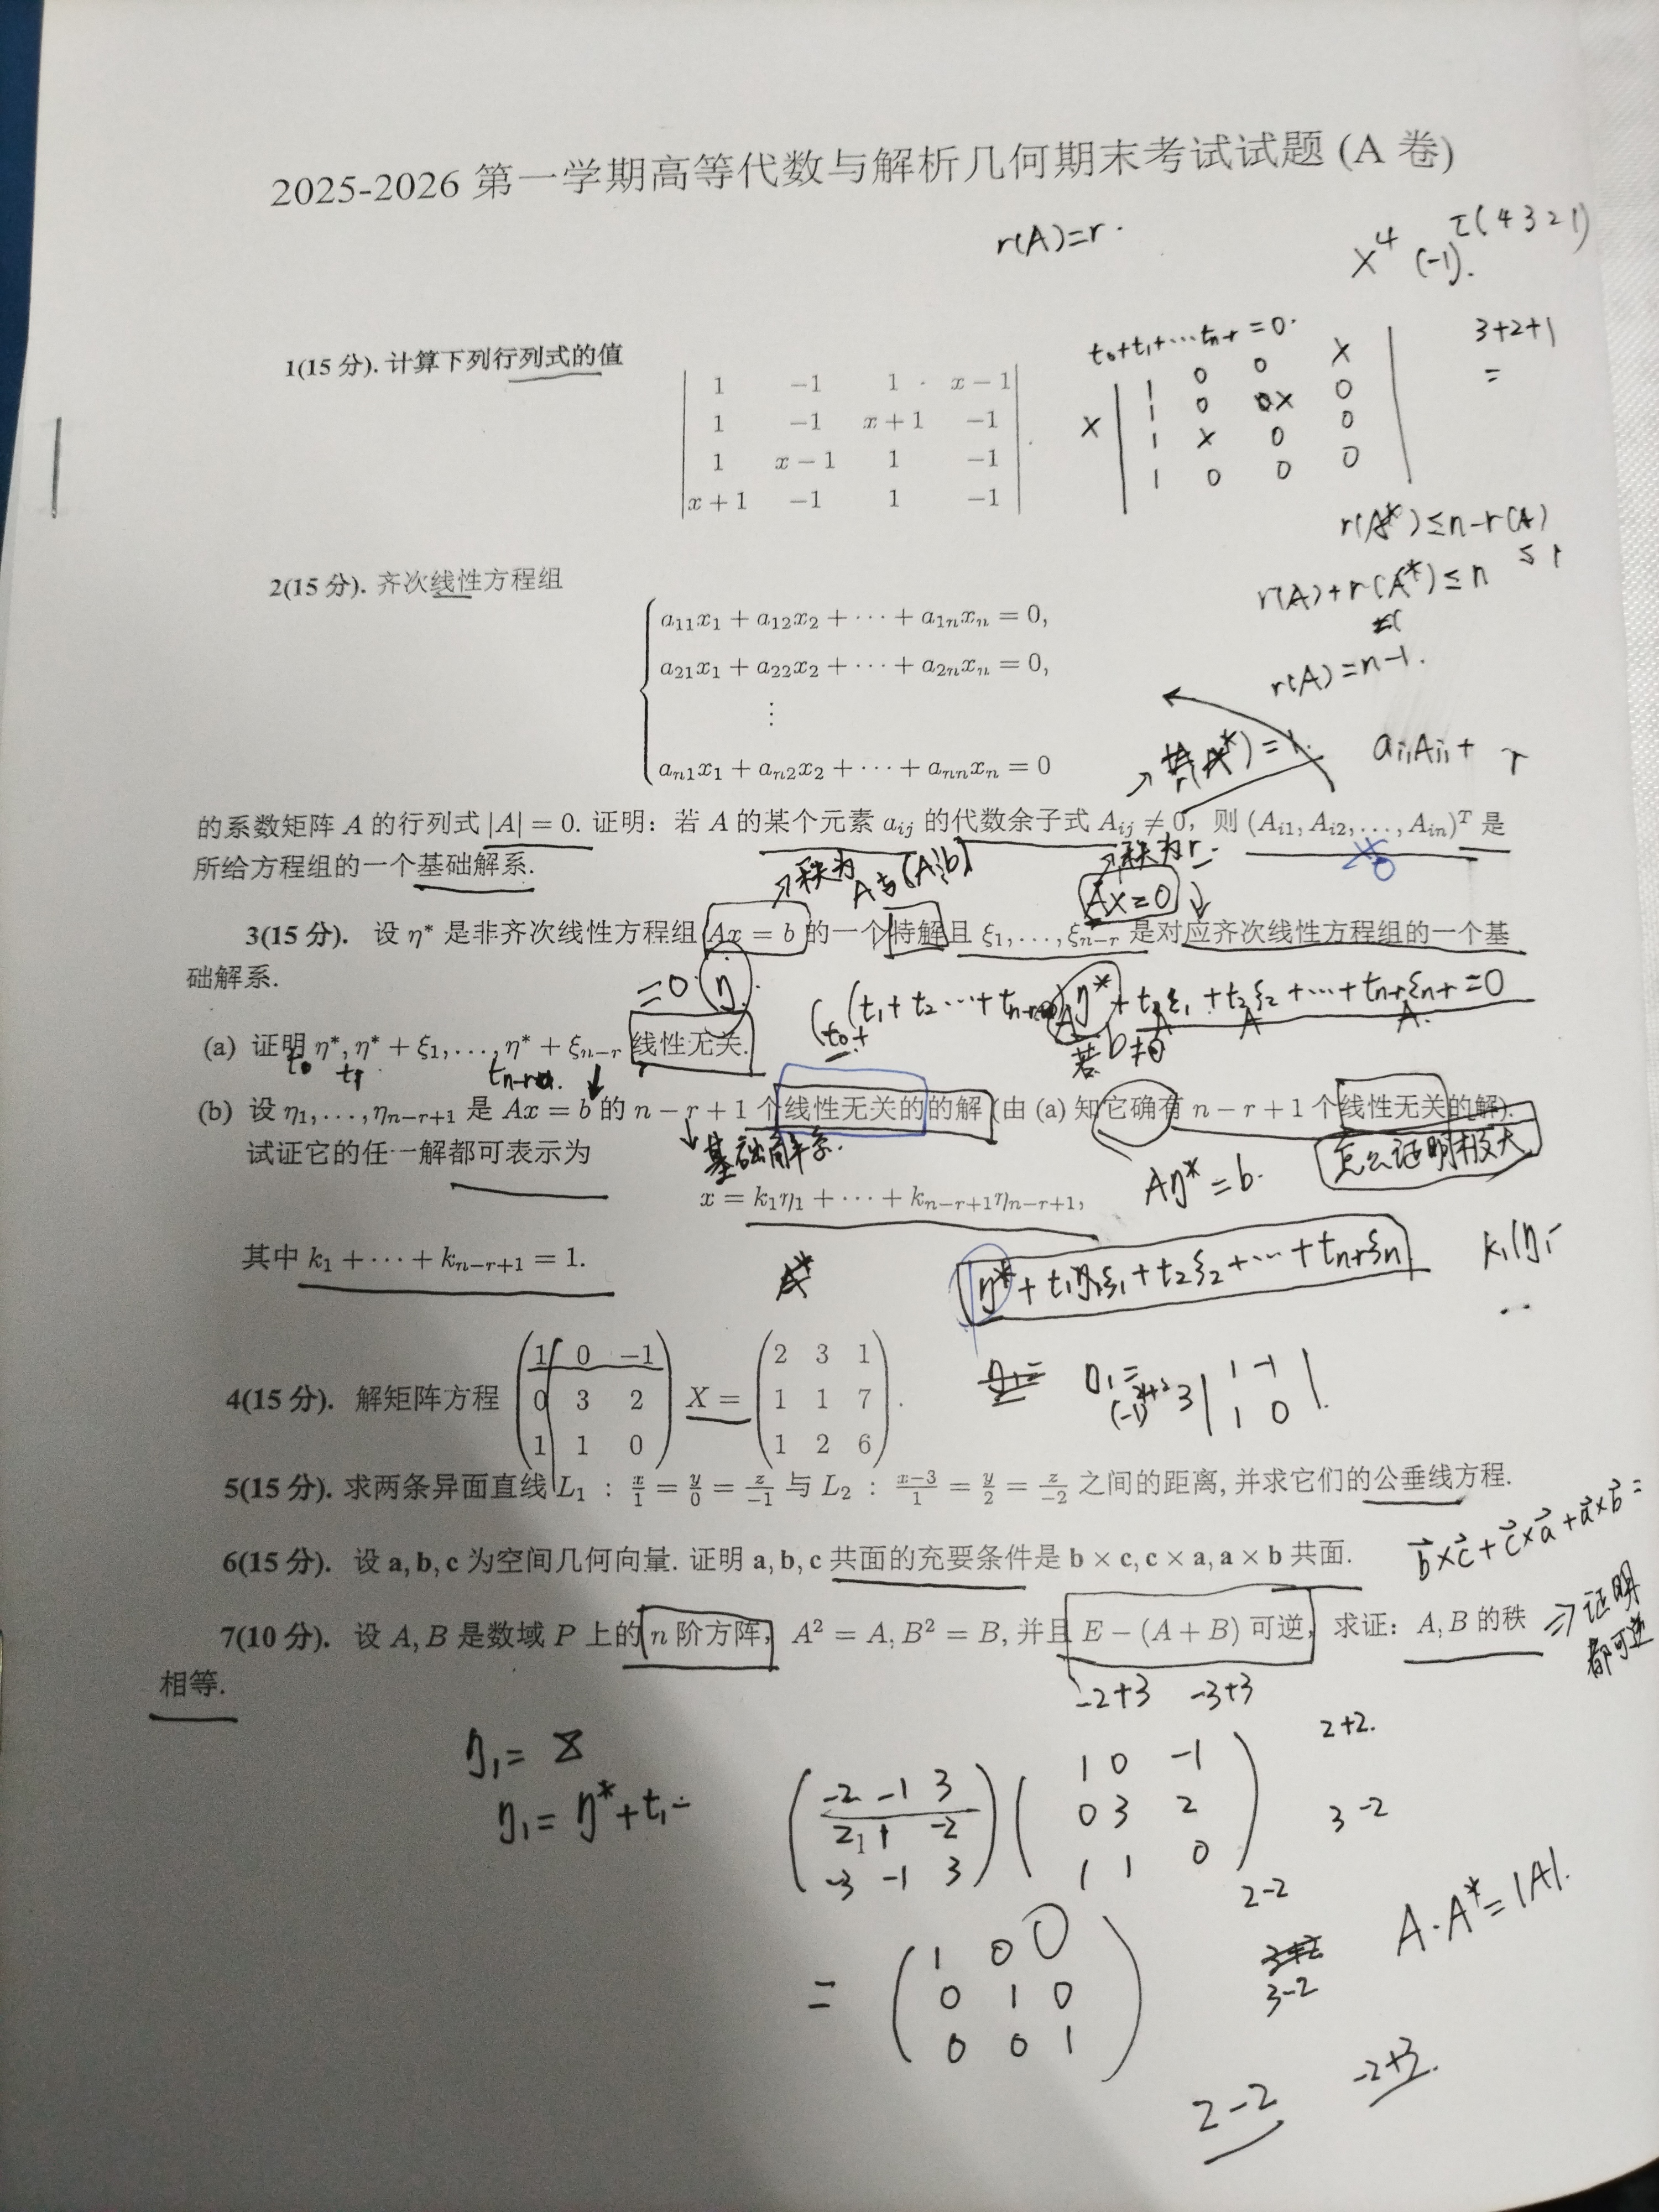 2025-2026 第一学期高等代数与解析几何期末考试试题 (A 卷)
r(A)=r.
x⁴ (-1). τ(4321)
3+2+1
=
t₀+t₁+⋯tn-r=0.
1(15 分). 计算下列行列式的值
| 1 −1 1 x − 1 |
| 1 −1 x + 1 −1 |
| 1 x − 1 1 −1 |
| x + 1 −1 1 −1 | .
x | 1 0 0 x |
| 1 0 x 0 |
| 1 x 0 0 |
| 1 0 0 0 |
r(A*)≤n-r(A)
≤1
r(A)+r(A*)≤n
r(A)=n-1.
2(15 分). 齐次线性方程组
a₁₁x₁ + a₁₂x₂ + ⋯ + a₁ₙxₙ = 0,
a₂₁x₁ + a₂₂x₂ + ⋯ + a₂ₙxₙ = 0,
⋮
aₙ₁x₁ + aₙ₂x₂ + ⋯ + aₙₙxₙ = 0
(A*)=1.
的系数矩阵 A 的行列式 |A| = 0. 证明：若 A 的某个元素 aᵢⱼ 的代数余子式 Aᵢⱼ ≠ 0，则 (Aᵢ₁, Aᵢ₂, …, Aᵢₙ)ᵀ 是
所给方程组的一个基础解系.
秩为
A与(A¦b)
秩为r.
Ax=0
3(15 分). 设 η* 是非齐次线性方程组 Ax = b 的一个特解且 ξ₁, …, ξₙ₋ᵣ 是对应齐次线性方程组的一个基
础解系.
=0 η.
(t₀+
(t₁+t₂⋯+tn-r)η*+t₁ξ₁+t₂ξ₂+⋯+tn-rξn-r=0
A A A A.
若 b≠0
(a) 证明 η*, η* + ξ₁, …, η* + ξₙ₋ᵣ 线性无关.
t₀ t₁ tn-r.
(b) 设 η₁, …, ηₙ₋ᵣ₊₁ 是 Ax = b 的 n − r + 1 个线性无关的的解 (由 (a) 知它确有 n − r + 1 个线性无关的解).
试证它的任一解都可表示为
基础解系.
Aη*=b.
怎么证明极大
x = k₁η₁ + ⋯ + kₙ₋ᵣ₊₁ηₙ₋ᵣ₊₁,
其中 k₁ + ⋯ + kₙ₋ᵣ₊₁ = 1.
η*+t₁ξ₁+t₂ξ₂+⋯+tn-rξn
k₁(η₁-
4(15 分). 解矩阵方程 X = .
1 0 −1
0 3 2
1 1 0
2 3 1
1 1 7
1 2 6
η₁=
(-1)²⁺² 3 | 1 -1 |
| 1 0 | .
5(15 分). 求两条异面直线 L₁ : x/1 = y/0 = z/−1 与 L₂ : x−3/1 = y/2 = z/−2 之间的距离, 并求它们的公垂线方程.
b⃗×c⃗+c⃗×a⃗+a⃗×b⃗=
6(15 分). 设 a, b, c 为空间几何向量. 证明 a, b, c 共面的充要条件是 b × c, c × a, a × b 共面.
7(10 分). 设 A, B 是数域 P 上的 n 阶方阵，A² = A, B² = B, 并且 E − (A + B) 可逆，求证：A, B 的秩
相等.
⇒证明
都可逆
-2+3 -3+3
2+2.
3-2
2-2
η₁=
η₁=η*+t₁-
-2 -1 3
2 1 -2
-3 -1 3
1 0 -1
0 3 2
1 1 0
=
1 0 0
0 1 0
0 0 1
3-2
A·A*=|A|.
2-2
-2+3.